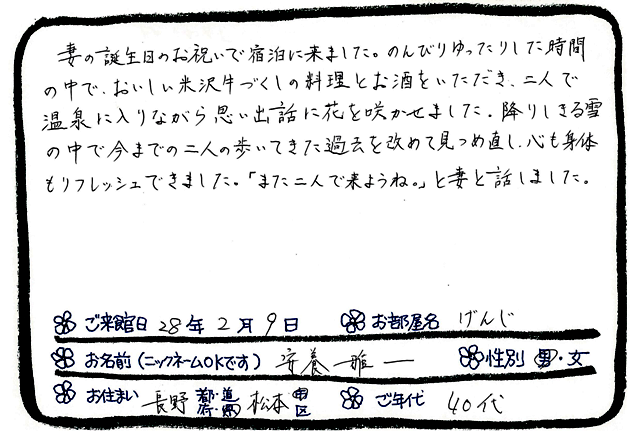 妻の誕生日のお祝いで宿泊に来ました。のんびりゆったりした時間
の中で、おいしい米沢牛づくしの料理とお酒をいただき、二人で
温泉に入りながら思い出話に花を咲かせました。降りしきる雪
の中で今までの二人の歩いてきた過去を改めて見つめ直し、心も身体
もリフレッシュできました。「また二人で来ようね。」と妻と話しました。
ご来館日 28年2月9日 お部屋名 げんじ
お名前(ニックネームOKです) 安養 雅一 性別 男・女
お住まい 長野 都・道・府・県 松本 市・区 ご年代 40代